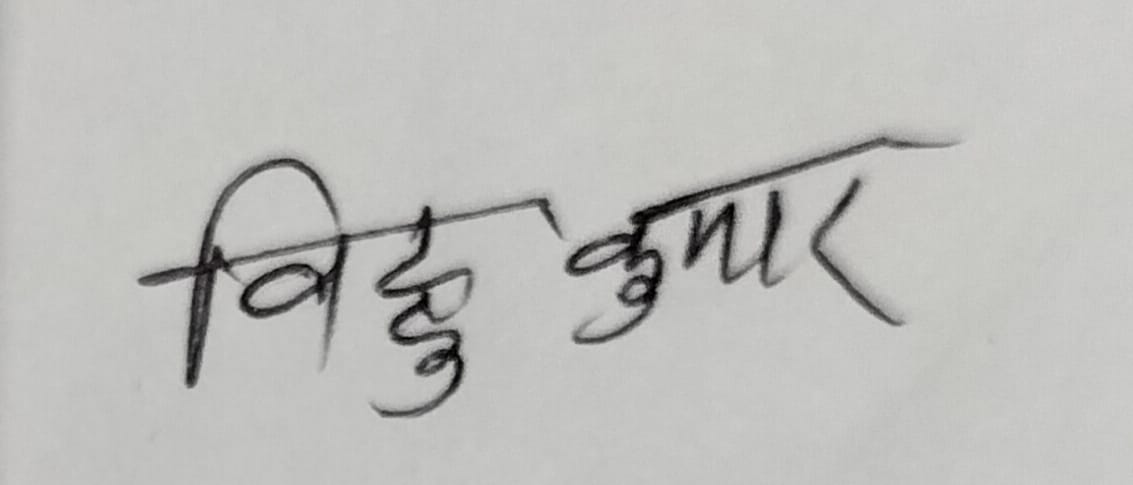 विट्टु कुमार